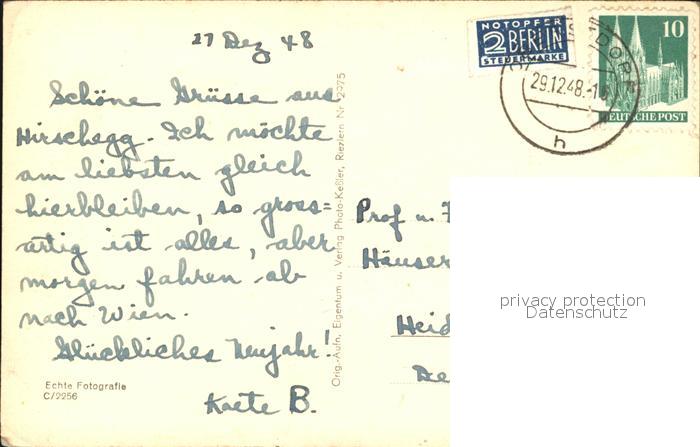 27 Dez 48
NOTOPFER
2 BERLIN
STEUERMARKE
10
29.12.48.-1
DEUTSCHE POST
h
Schöne Grüsse aus
Hirschegg. Ich möchte
am liebsten gleich
hierbleiben, so gross=
artig ist alles, aber
morgen fahren ab
nach Wien.
Glückliches Neujahr!
Kaete B.
Echte Fotografie
C/2256
Orig.-Aufn., Eigentum u. Verlag Photo-Keßler, Riezlern Nr. 2975
Prof u.
Häuser
Heid
privacy protection
Datenschutz